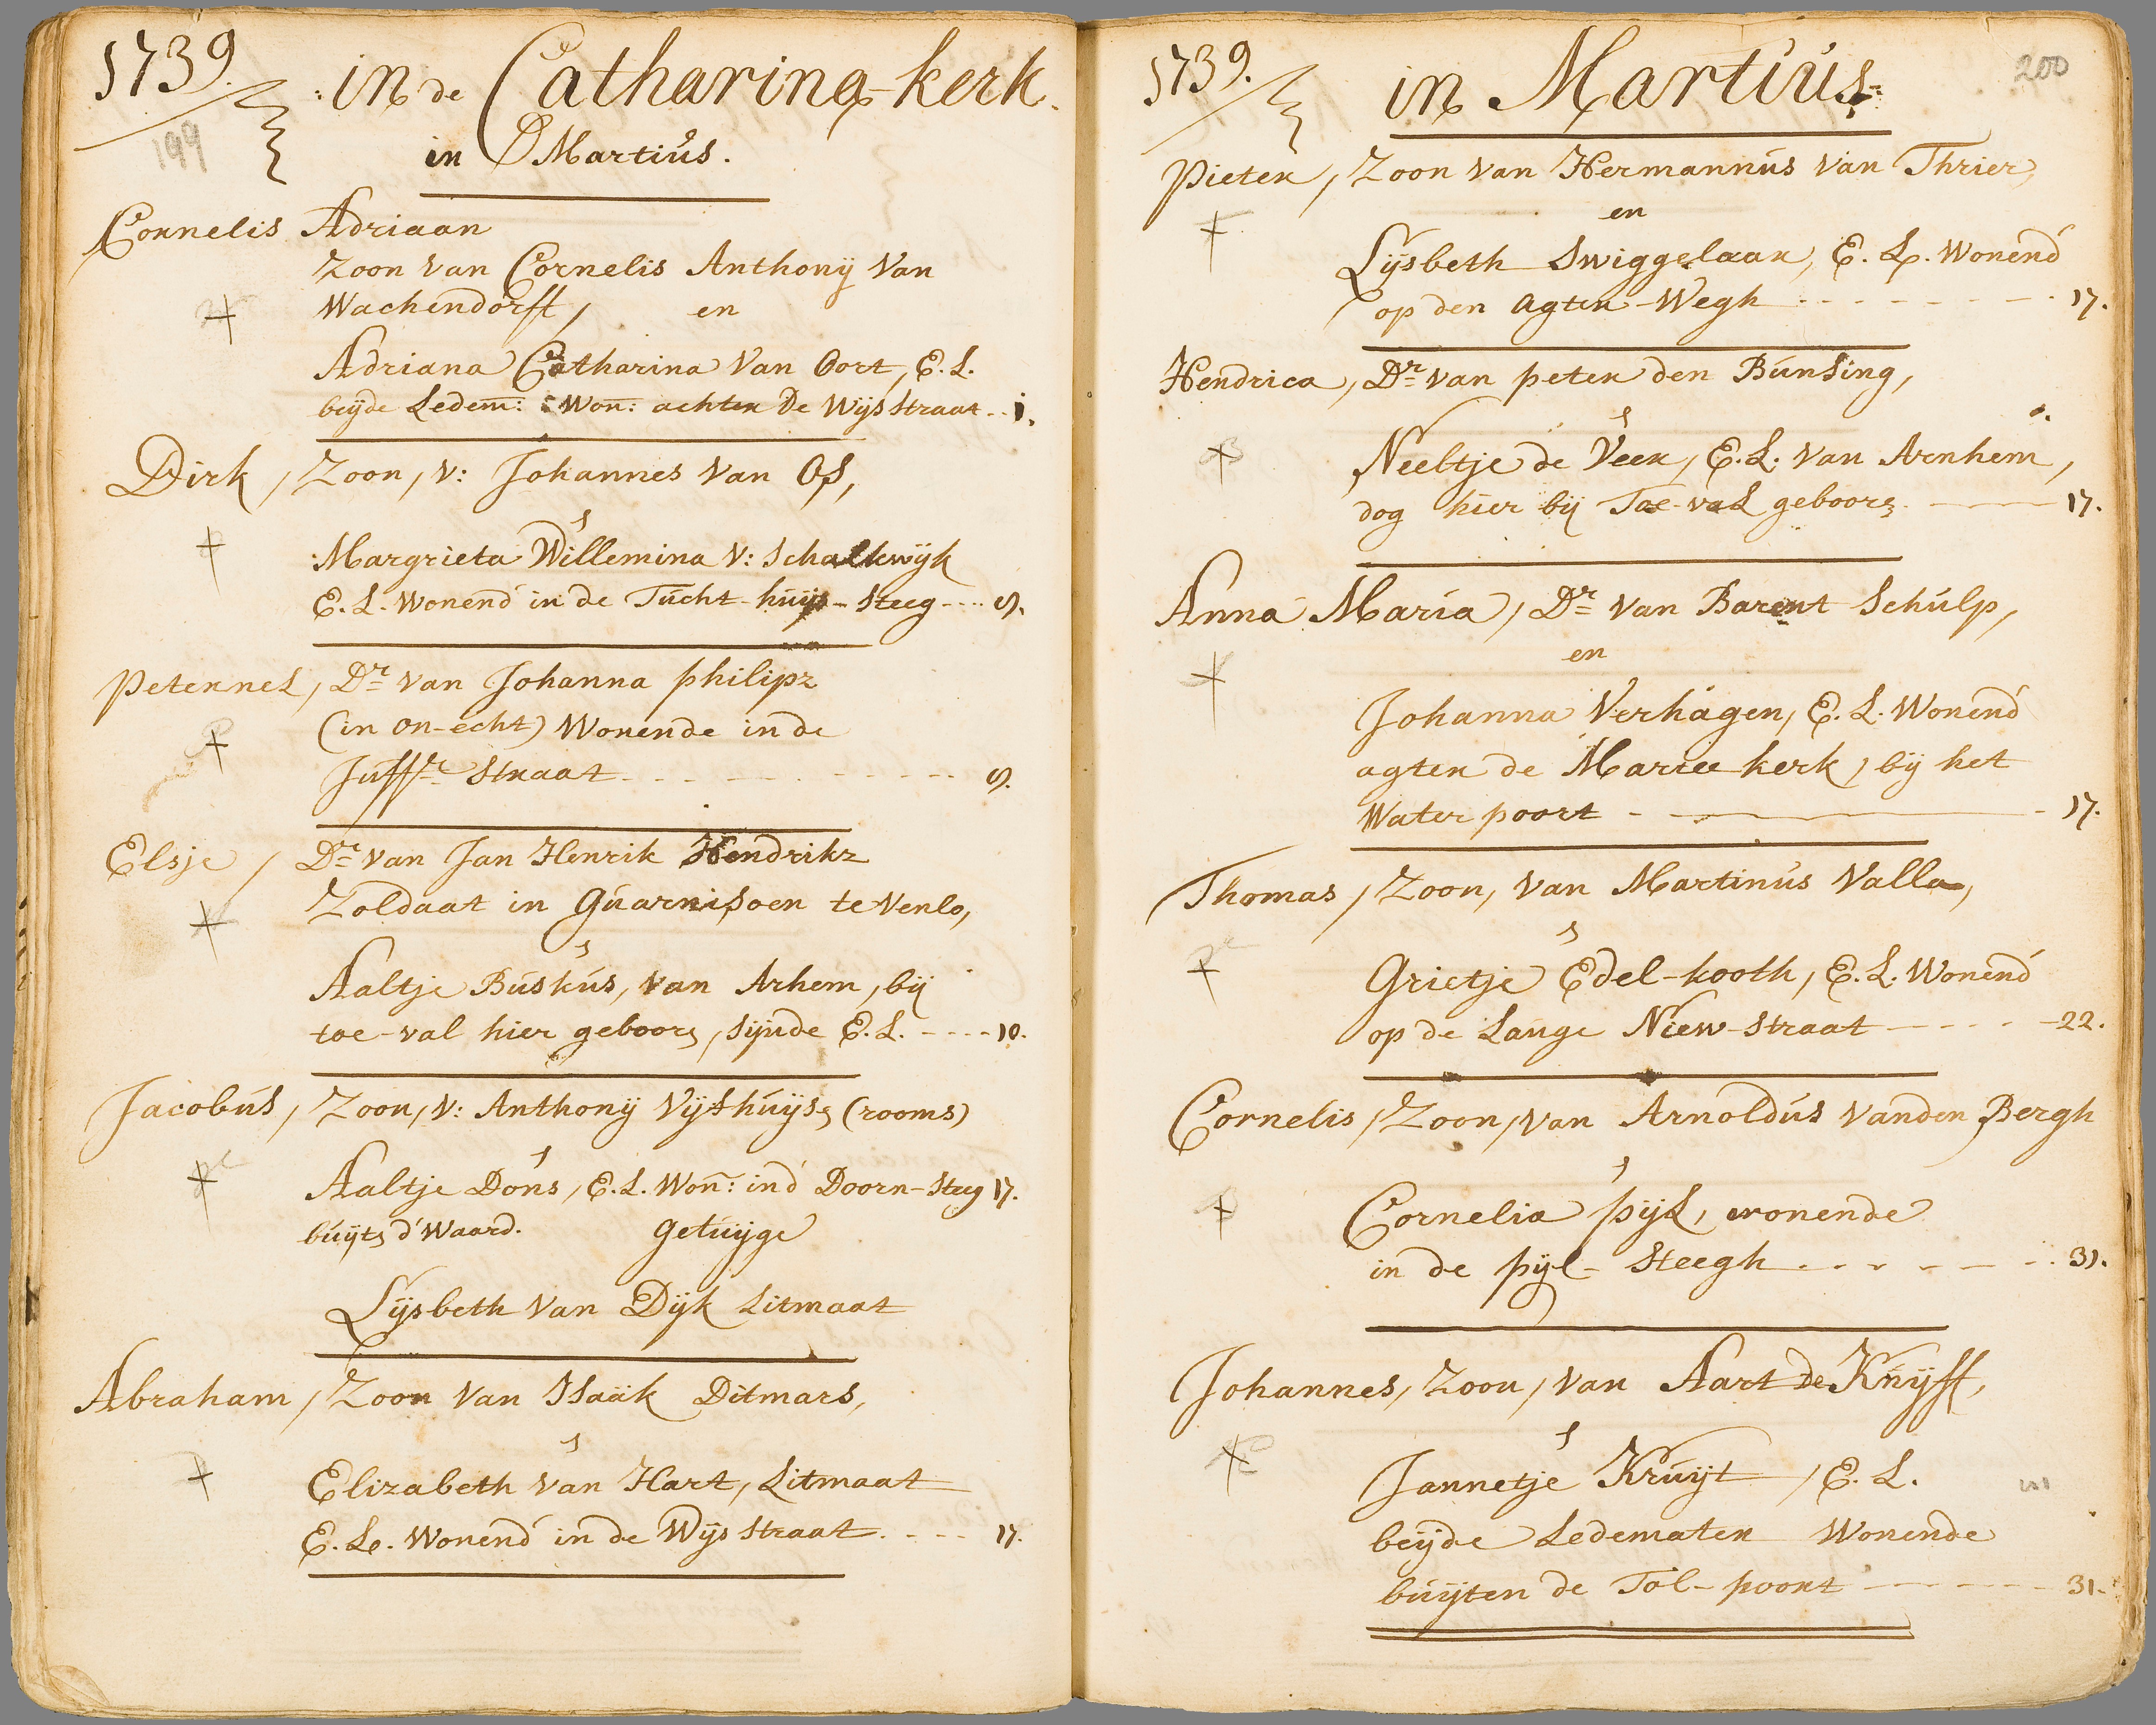 1739.
199
in de Catharina-kerk.
in Martius.
Cornelis Adriaan
Zoon van Cornelis Anthonij Van
Wachendorff, en
Adriana Catharina Van Oort, E.L.
beijde Ledem: Won: achter De Wijs straat .. 1.
Dirk, Zoon, v: Johannes Van Os,
Margrieta Willemina v: Schalkwijk
E.L. Wonend in de Tucht-huijs-Steeg .... 9.
Peternel, Dr van Johanna philipz
(in on-echt) Wonende in de
Juffr Straat - - - - - - - - 9.
Elsje, Dr van Jan Henrik Hendrikz
Zoldaat in Guarnisoen te Venlo,
Aaltje Buskus, van Arhem, bij
toe-val hier geboor, sijnde E.L. - - - - 10.
Jacobus, Zoon, v: Anthonij Vijthuijs (rooms)
Aaltje Dons, E.L. Won: in d' Doorn-Steeg 17.
buijt d' Waard. getuijge
Lijsbeth van Dijk Litmaat
Abraham, Zoon Van Isaäk Ditmars,
Elizabeth van Hart, Litmaat
E.L. Wonend in de Wijs straat. - - - 17.
1739.
200
in Martius
Pieter, Zoon van Hermannus Van Thrier,
en
Lijsbeth Swiggelaar, E.L. Wonend
op den Agter-Wegh - - - - - - - 17.
Hendrica, Dr van peter den Bunsing,
Neeltje de Veer, E.L. van Arnhem,
dog hier bij Toe-val geboor. - 17.
Anna Maria, Dr van Barent Schulp,
en
Johanna Verhagen, E.L. Wonend
agter de Mariee kerk, bij het
Water poort - - 17.
Thomas, Zoon, van Martinus Valla,
Grietje Edel-kooth, E.L. Wonend
op de Lange Niew-straat - - - - - 22.
Cornelis, Zoon, van Arnoldus vanden Bergh
Cornelia pijl, wonende
in de pijl-Steegh - - - - - - 31.
Johannes, Zoon, van Aart de Knijff,
Jannetje Kruijt, E.L.
beijde Ledemater Wonende
buijten de Tol-poort - - - - - 31.